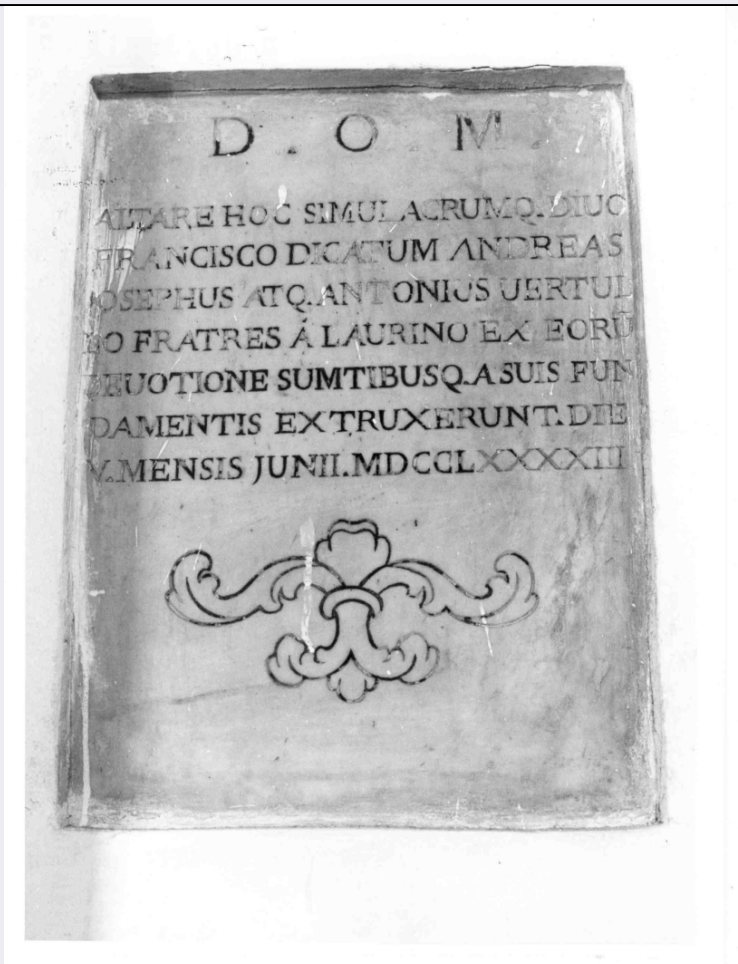 D . O . M .
ALTARE HOC SIMULACRUMQ. DIUO
FRANCISCO DICATUM ANDREAS
IOSEPHUS ATQ. ANTONIUS UERTUL
LO FRATRES Á LAURINO EX EORŪ
DEUOTIONE SUMTIBUSQ. A SUIS FUN
DAMENTIS EXTRUXERUNT. DIE
V. MENSIS JUNII. MDCCLXXXXIII